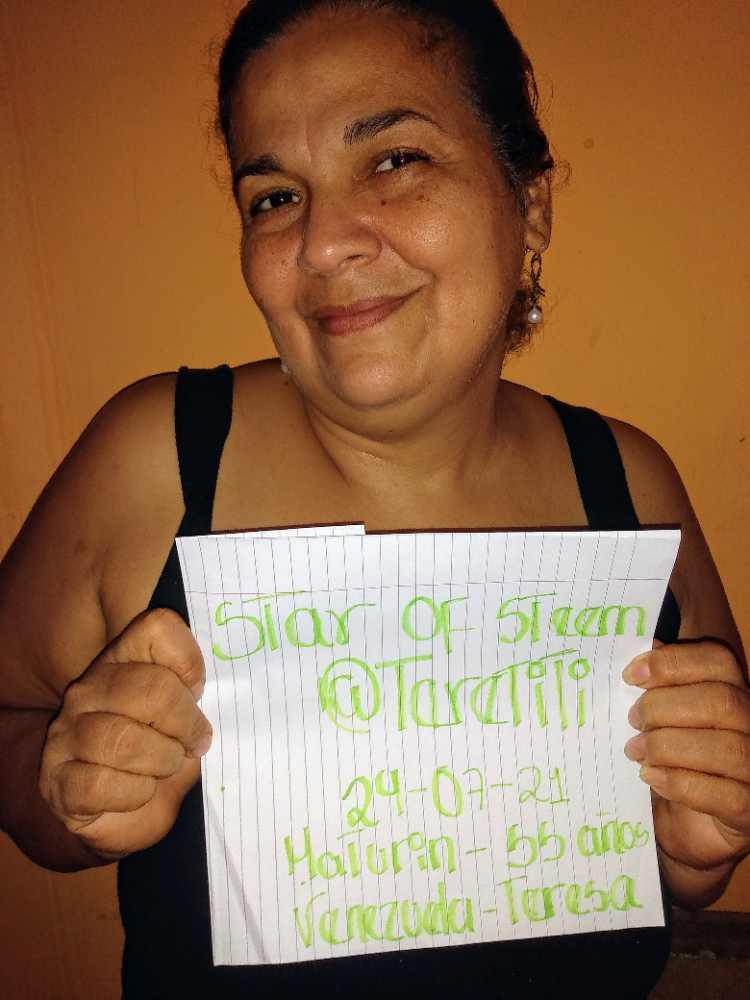 Star of Steem
@TaraTili
24-07-21
Maturin - 55 años
Venezuela - Teresa